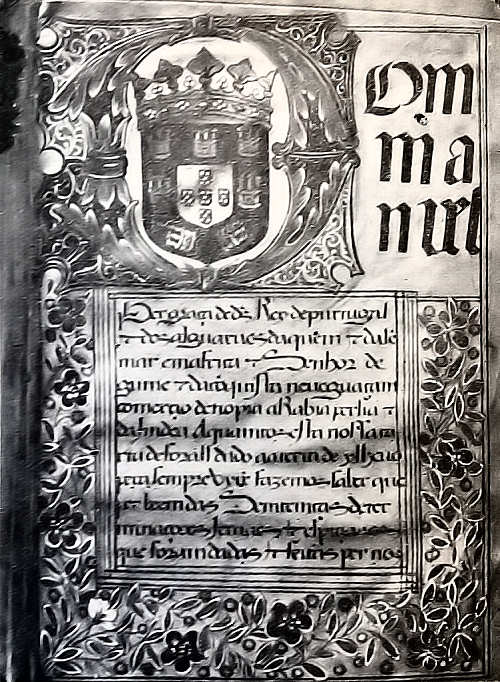 Dom
ma
nuel
Per graça de ds Rey de purtugal
⁊ dos alguarues daquem ⁊ dale
mar em africa ⁊ Senhor de
guine ⁊ da cõquista naueguaçam
comerçio detiopia aRabia persia ⁊
da India Aquantos esta nossa car
ta de forall dado de ylhauo
pera sempre virẽ fazemos saber que
per bem das Sentenças deter
minações ⁊
que foram dadas ⁊ feitas per nos